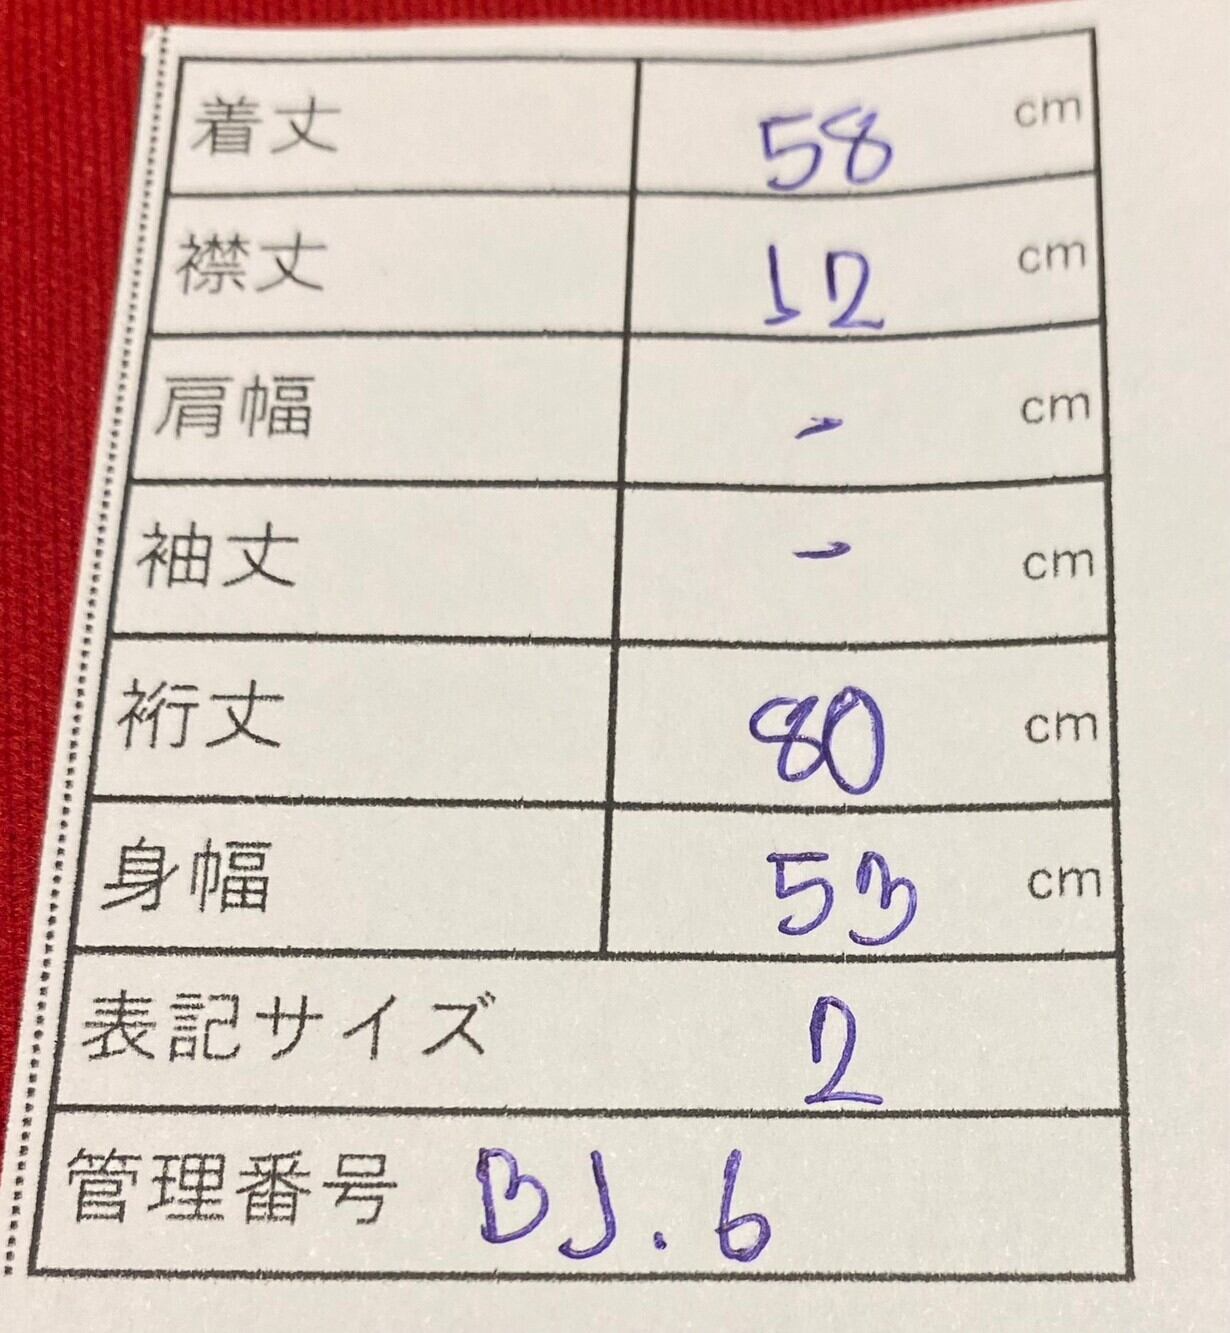 着丈 58 cm
襟丈 12 cm
肩幅 - cm
袖丈 - cm
裄丈 80 cm
身幅 53 cm
表記サイズ 2
管理番号 BJ.6